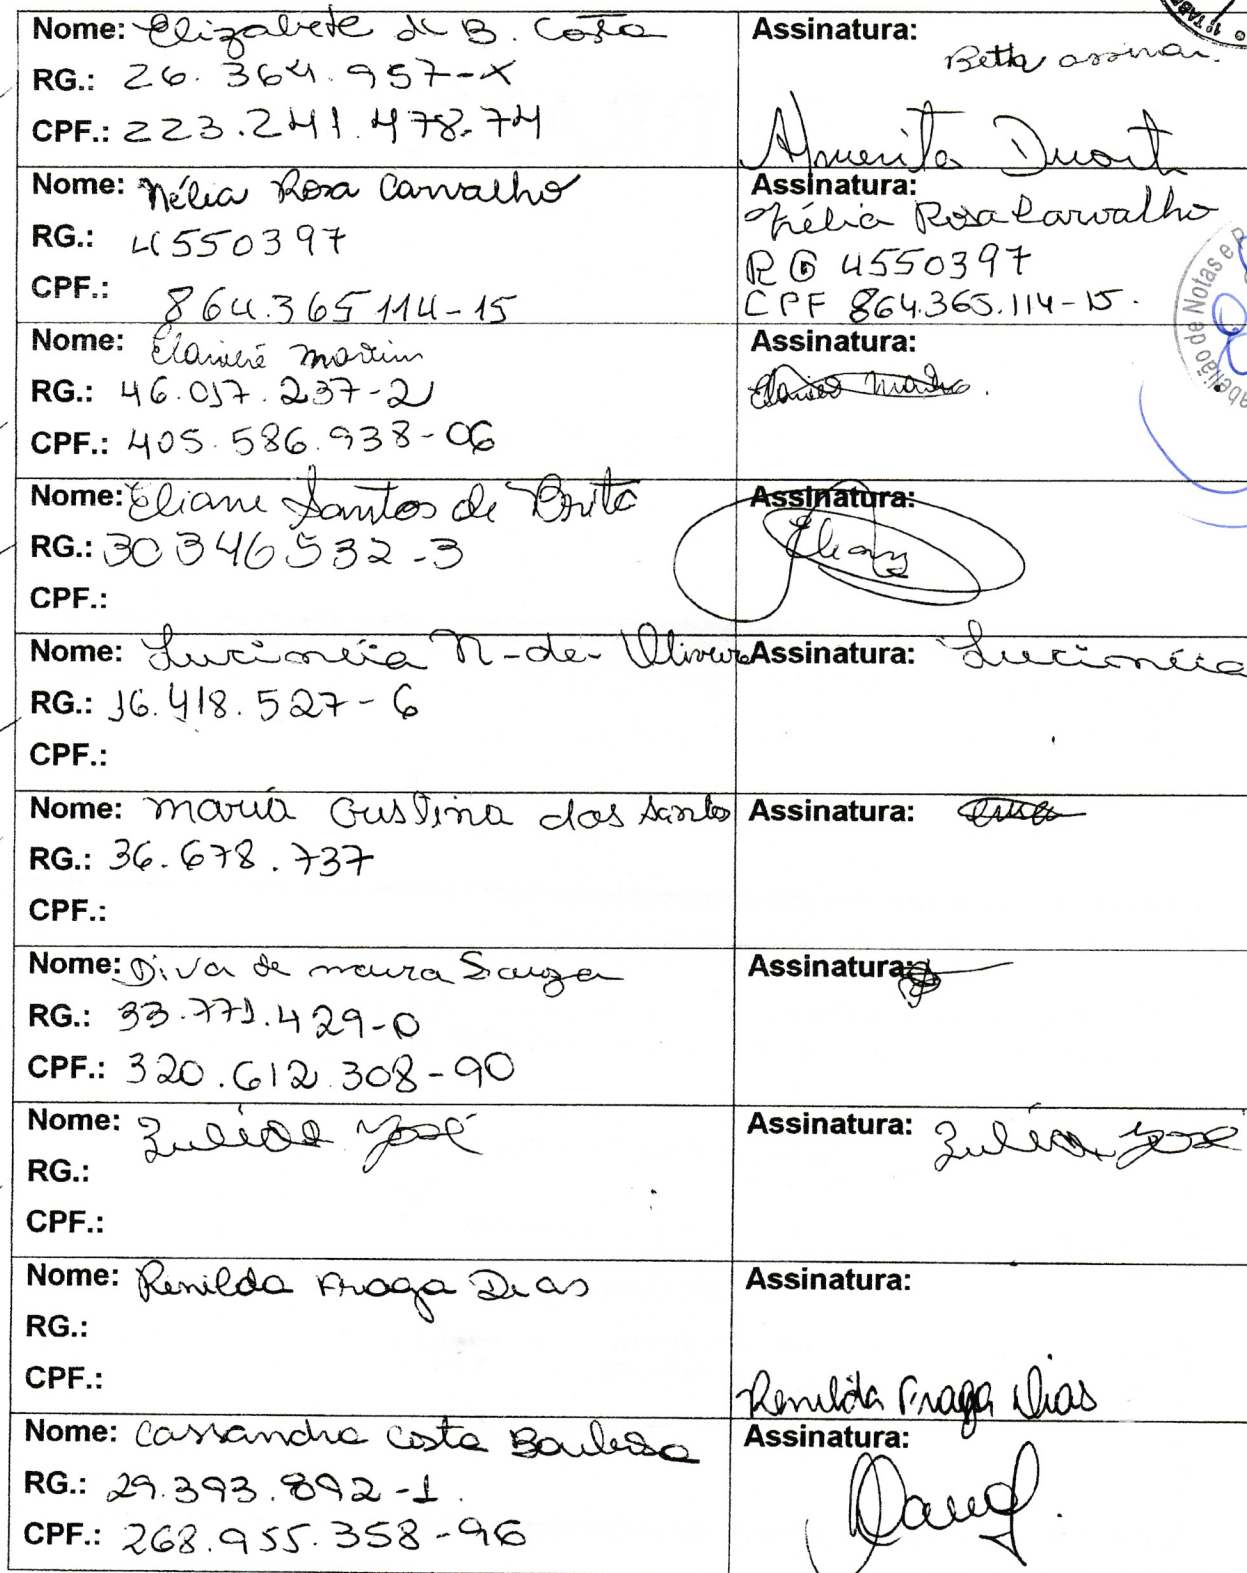 Nome: Elizabete de B. Costa
RG.: 26.364.957-X
CPF.: 223.241.478.74
Assinatura:
Beth assinar.
Duart
Nome: Nélia Rosa Carvalho
RG.: 4550397
CPF.: 864.365 114-15
Assinatura:
Nélia Rosa Carvalho
RG 4550397
CPF 864.365.114-15.
Nome:
RG.: 46.017.237-2
CPF.: 405.586.938-06
Assinatura:
Nome: Eliane Santos de Brito
RG.: 30346532-3
CPF.:
Assinatura:
Eliane
Nome: Lucinéia N-de-Oliveira
RG.: 16.418.527-6
CPF.:
Assinatura: Lucinéia
Nome: Maria Cristina dos Santos
RG.: 36.678.737
CPF.:
Assinatura:
Nome: Diva de moura Souza
RG.: 33.771.429-0
CPF.: 320.612.308-90
Assinatura:
Nome: José
RG.:
CPF.:
Assinatura: José
Nome: Renilda Fraga Dias
RG.:
CPF.:
Assinatura:
Renilda Fraga Dias
Nome: Cassandra Costa
RG.: 29.393.892-1.
CPF.: 268.955.358-96
Assinatura:
de Notas e